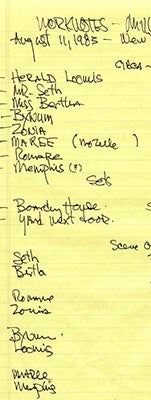 WORKNOTES - MILL
August 11, 1985 - New
CIRCA -
HERALD Loomis
MR. Seth
Miss Bertha
BYNUM
ZONIA
MAREE (Mozelle )
Romare
Memphis (?)
Sets
Boarding House.
Yard next door.
Scene
Seth
Bertha
Romare
Zonia
Bynum.
Loomis
MAREE
Memphis